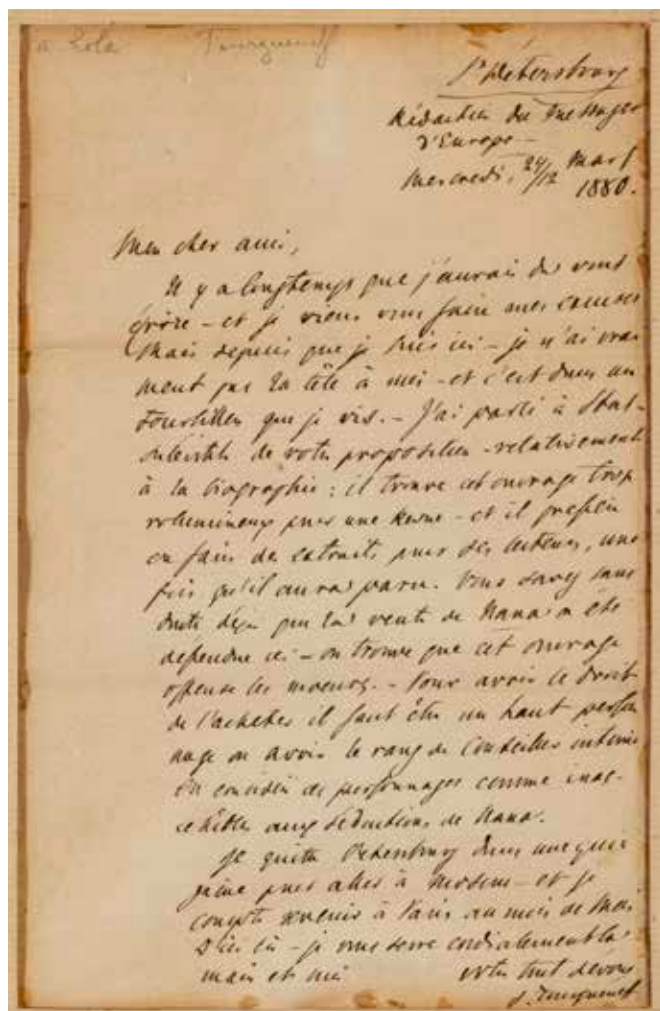 à Zola Tourgueneff
St Pétersbourg
Rédaction du Messager
d'Europe –
Mercredi, 24/12 Mars
1880.
Mon cher ami,
Il y a longtemps que j'aurais dû vous
écrire – et je viens vous faire mes excuses
Mais depuis que je suis ici – je n'ai vrai
ment pas la tête à moi – et c'est dans un
tourbillon que je vis. – J'ai parlé à Stas-
sulévitch de votre proposition relativement
à la biographie : il trouve cet ouvrage trop
volumineux pour une Revue – et il préfère
en faire des extraits pour ses lecteurs, une
fois qu'il aura paru. Vous savez sans
doute déjà que la vente de Nana a été
défendue ici – on trouve que cet ouvrage
offense les moeurs. – Pour avoir le droit
de l'acheter il faut être un haut person
nage ou avoir le rang de Conseiller intime
On considère ces personnages comme inac-
cessibles aux séductions de Nana.
Je quitte Pétersbourg dans une quin
zaine pour aller à Moscou – et je
compte revenir à Paris au mois de Mai
D'ici là – je vous serre cordialement la
main et suis votre tout dévoué
J. Tourgueneff